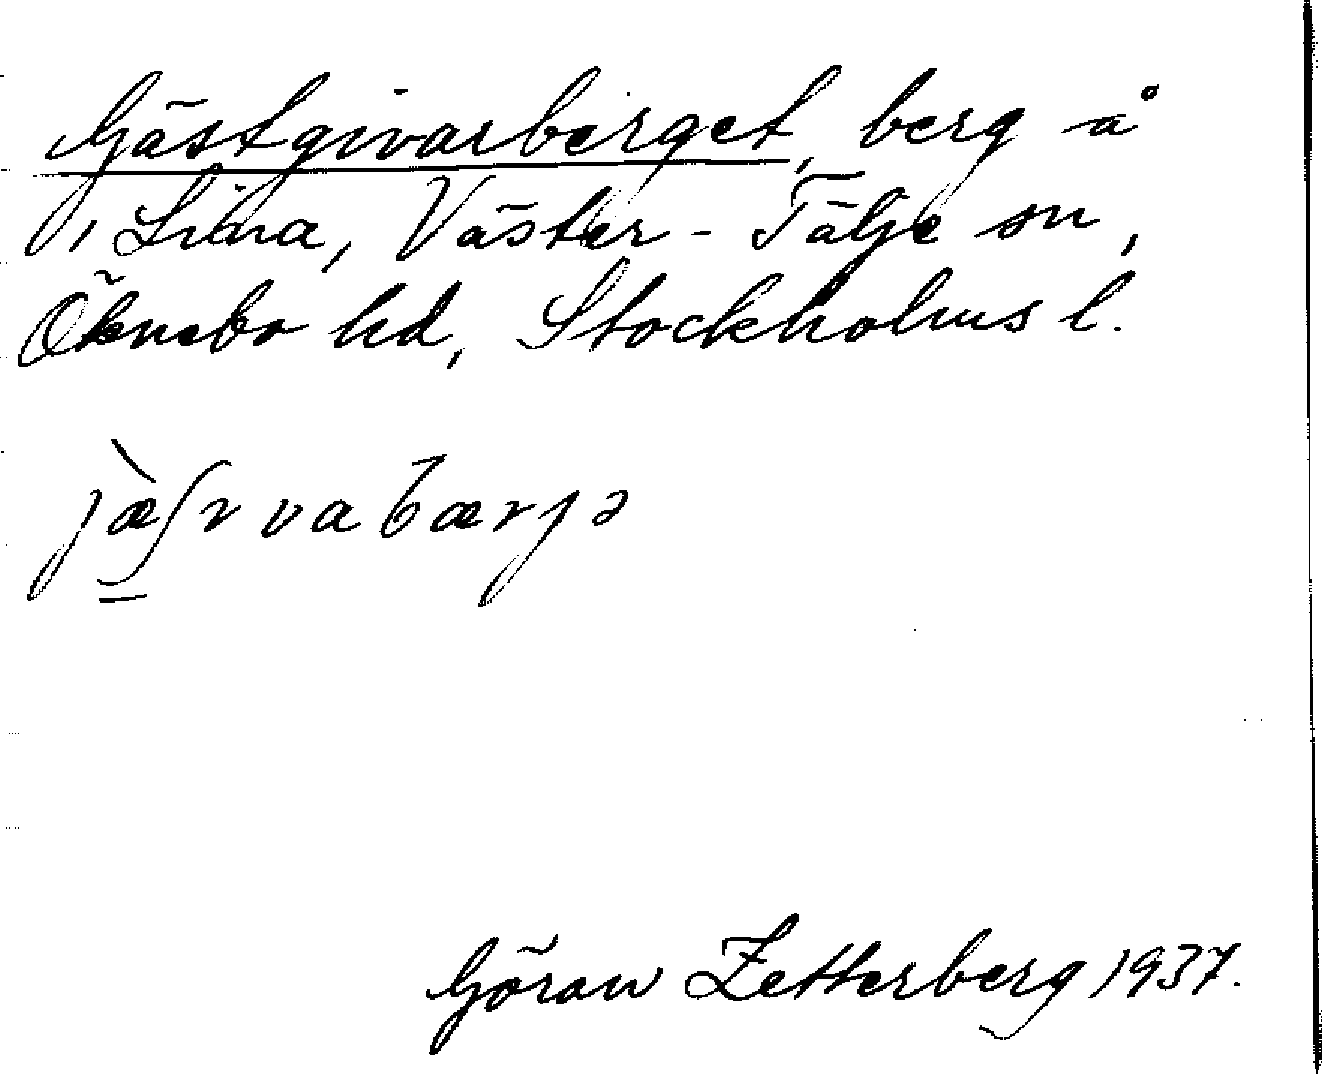 Gästgivarberget, berg å
V, Lina, Väster-Tälje sn,
Öknebo hd, Stockholms l.
jæ̀ʃɪvabærjə
Göran Zetterberg 1937.